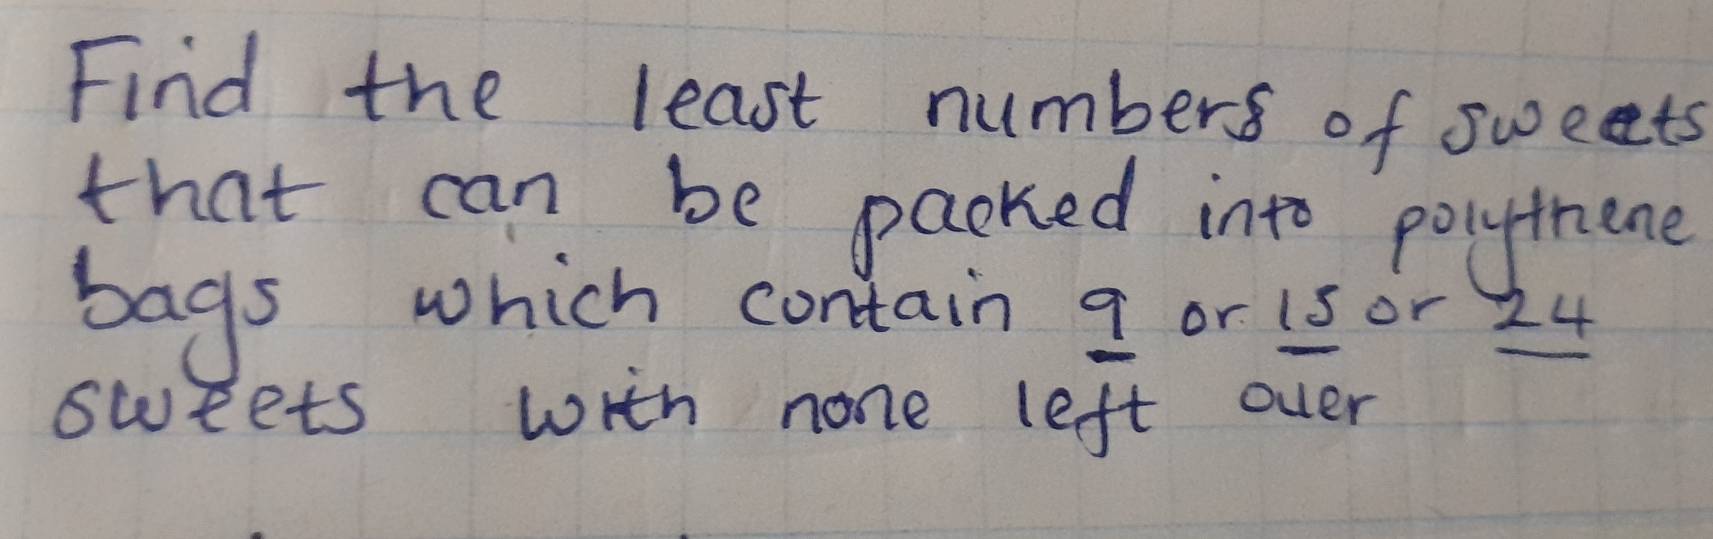 Find the least numbers of sweets
that can be packed into polythene
bags which contain 9 or 15 or 24
sweets with none left over